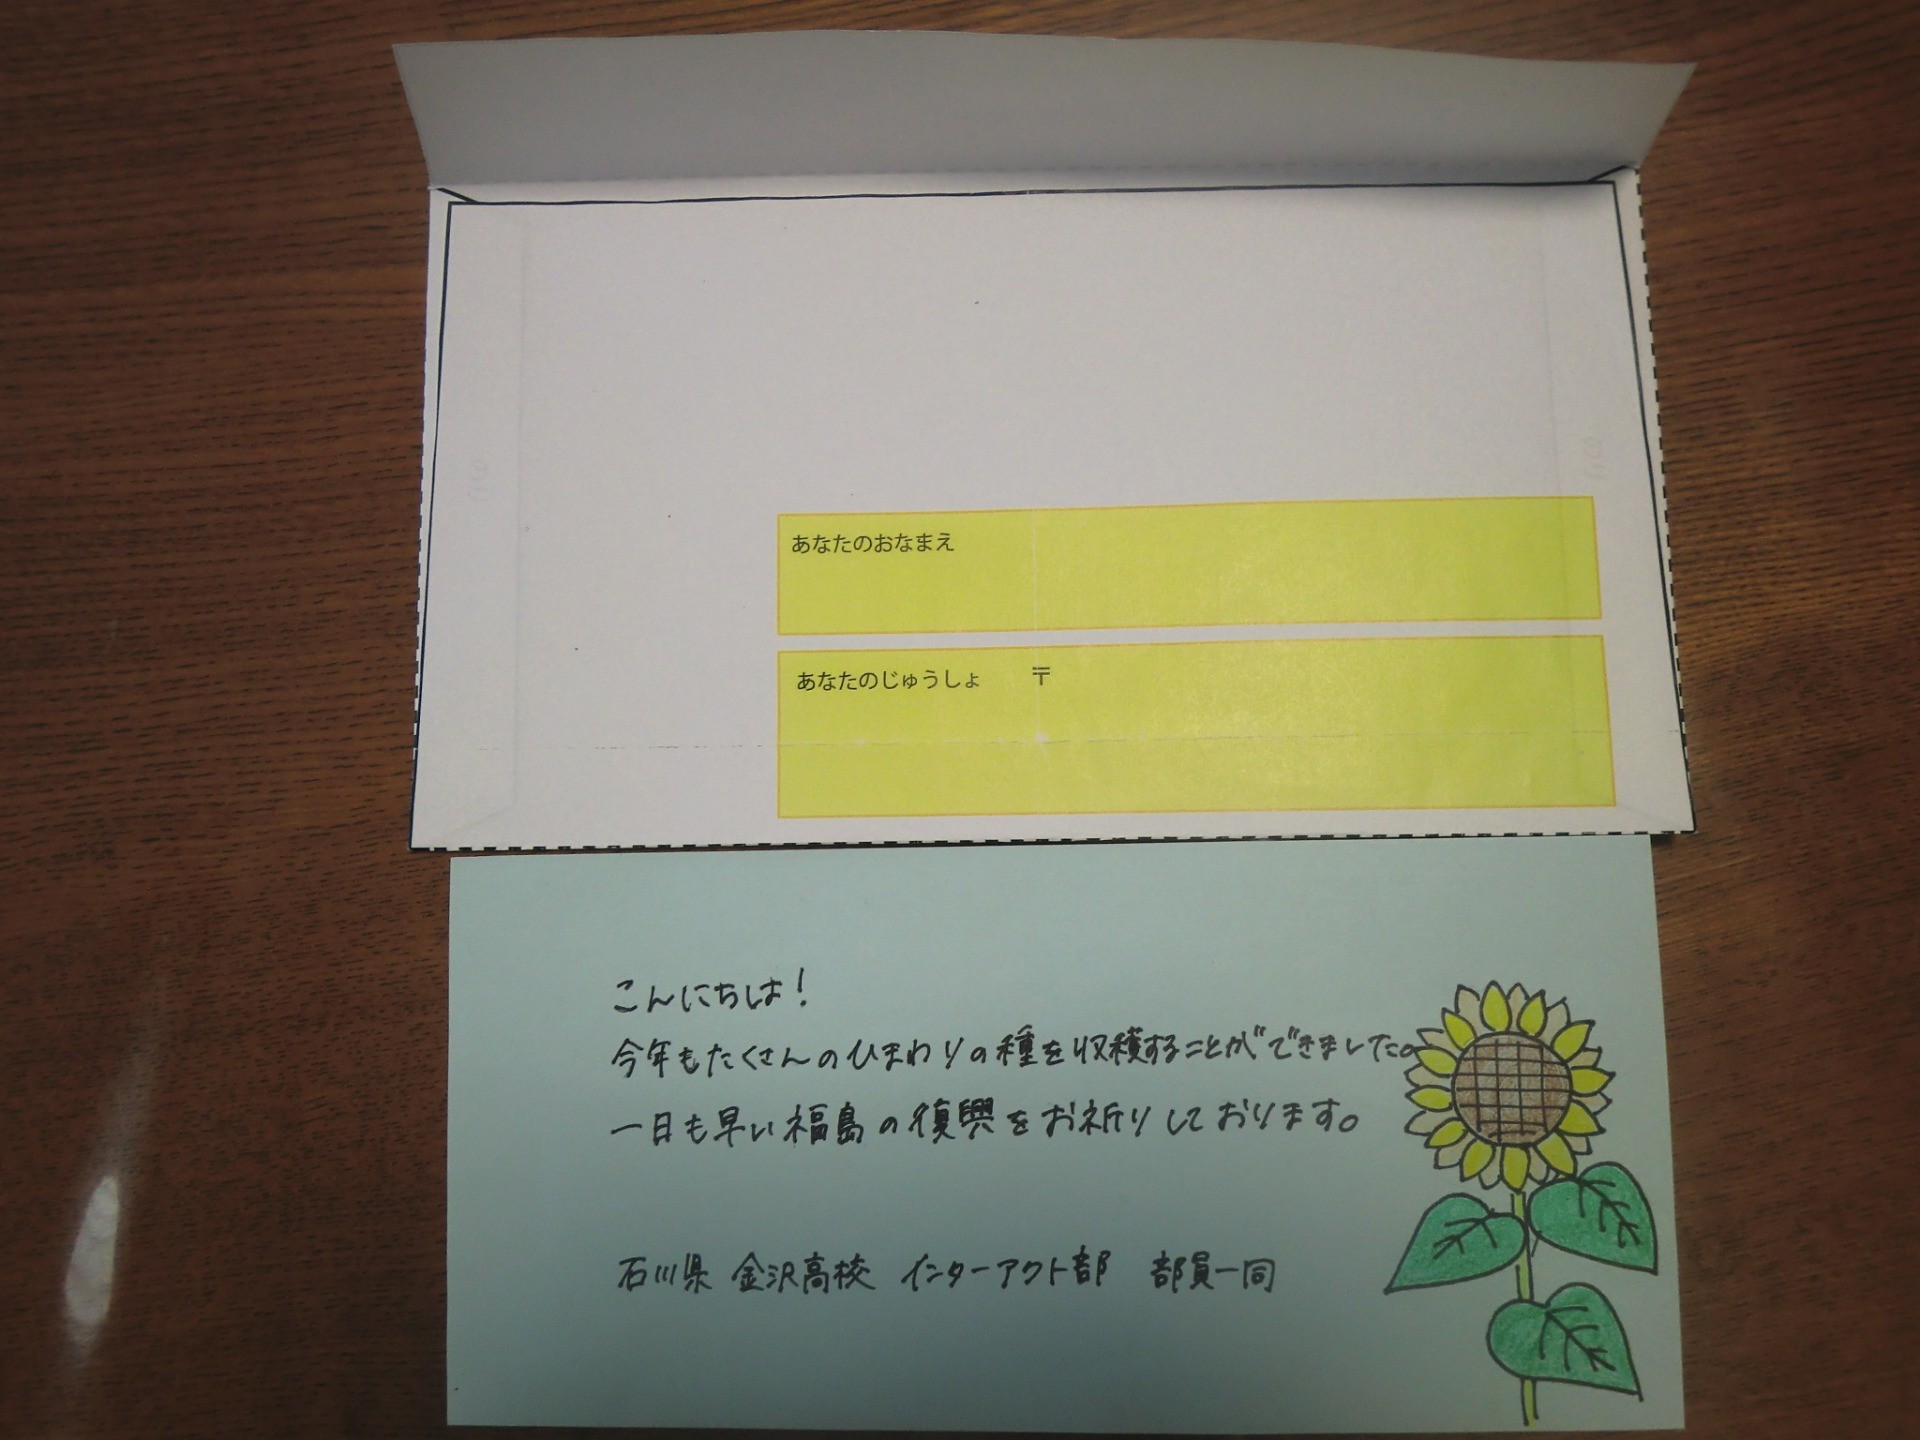 あなたのおなまえ
あなたのじゅうしょ 〒
こんにちは!
今年もたくさんのひまわりの種を収穫することができました。
一日も早い福島の復興をお祈りしております。
石川県 金沢高校 インターアクト部 部員一同